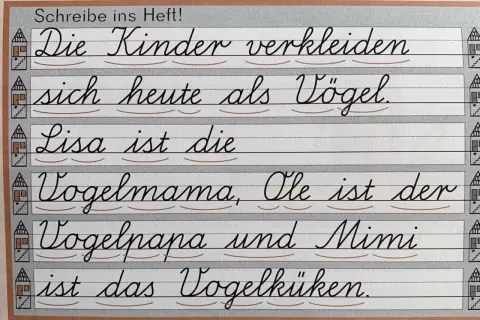 Schreibe ins Heft!
Die Kinder verkleiden
sich heute als Vögel.
Lisa ist die
Vogelmama, Ole ist der
Vogelpapa und Mimi
ist das Vogelküken.